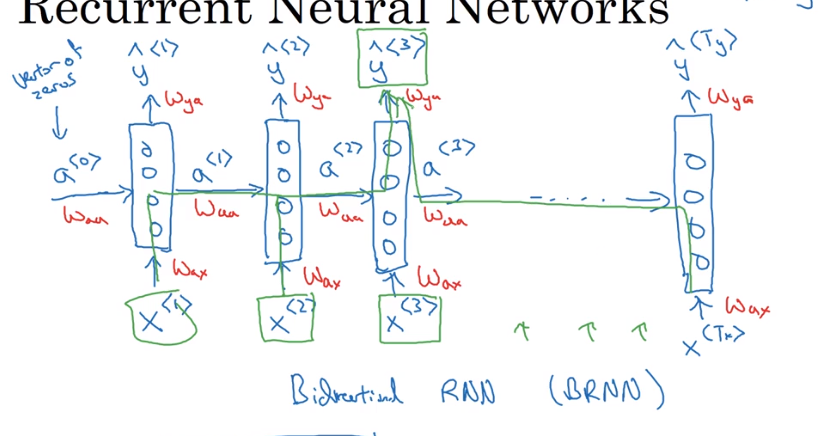 Recurrent Neural Networks
vector of zeros
ŷ<1> ŷ<2> ŷ<3> ŷ<Ty>
Wya Wya Wya Wya
a<0> a<1> a<2> a<3> - . . . . →
Waa Waa Waa Waa
Wax Wax Wax Wax
x<1> x<2> x<3> x<Tx>
Bidirectional RNN (BRNN)